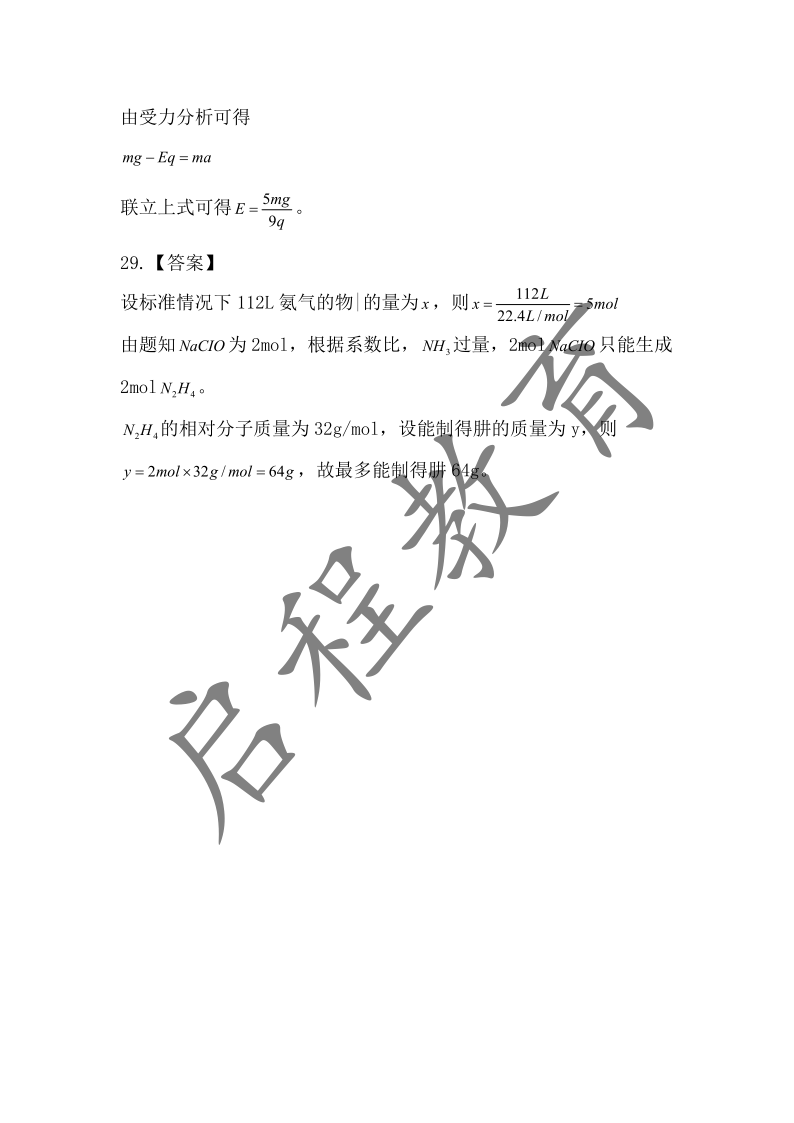 由受力分析可得
mg − Eq = ma
联立上式可得 E = 5mg/9q。
29.【答案】
设标准情况下 112L 氨气的物|的量为 x，则 x = 112L/22.4L/mol = 5mol
由题知 NaClO 为 2mol，根据系数比， NH₃ 过量，2mol NaClO 只能生成
2mol N₂H₄。
N₂H₄的相对分子质量为 32g/mol，设能制得肼的质量为 y，则
y = 2mol×32g/mol = 64g，故最多能制得肼 64g。
启程教育